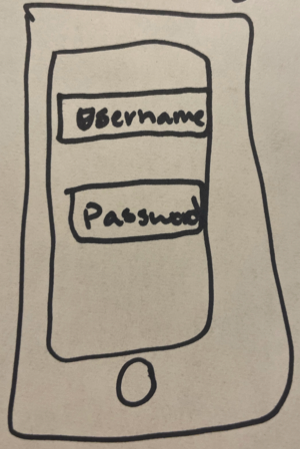 Username
Password